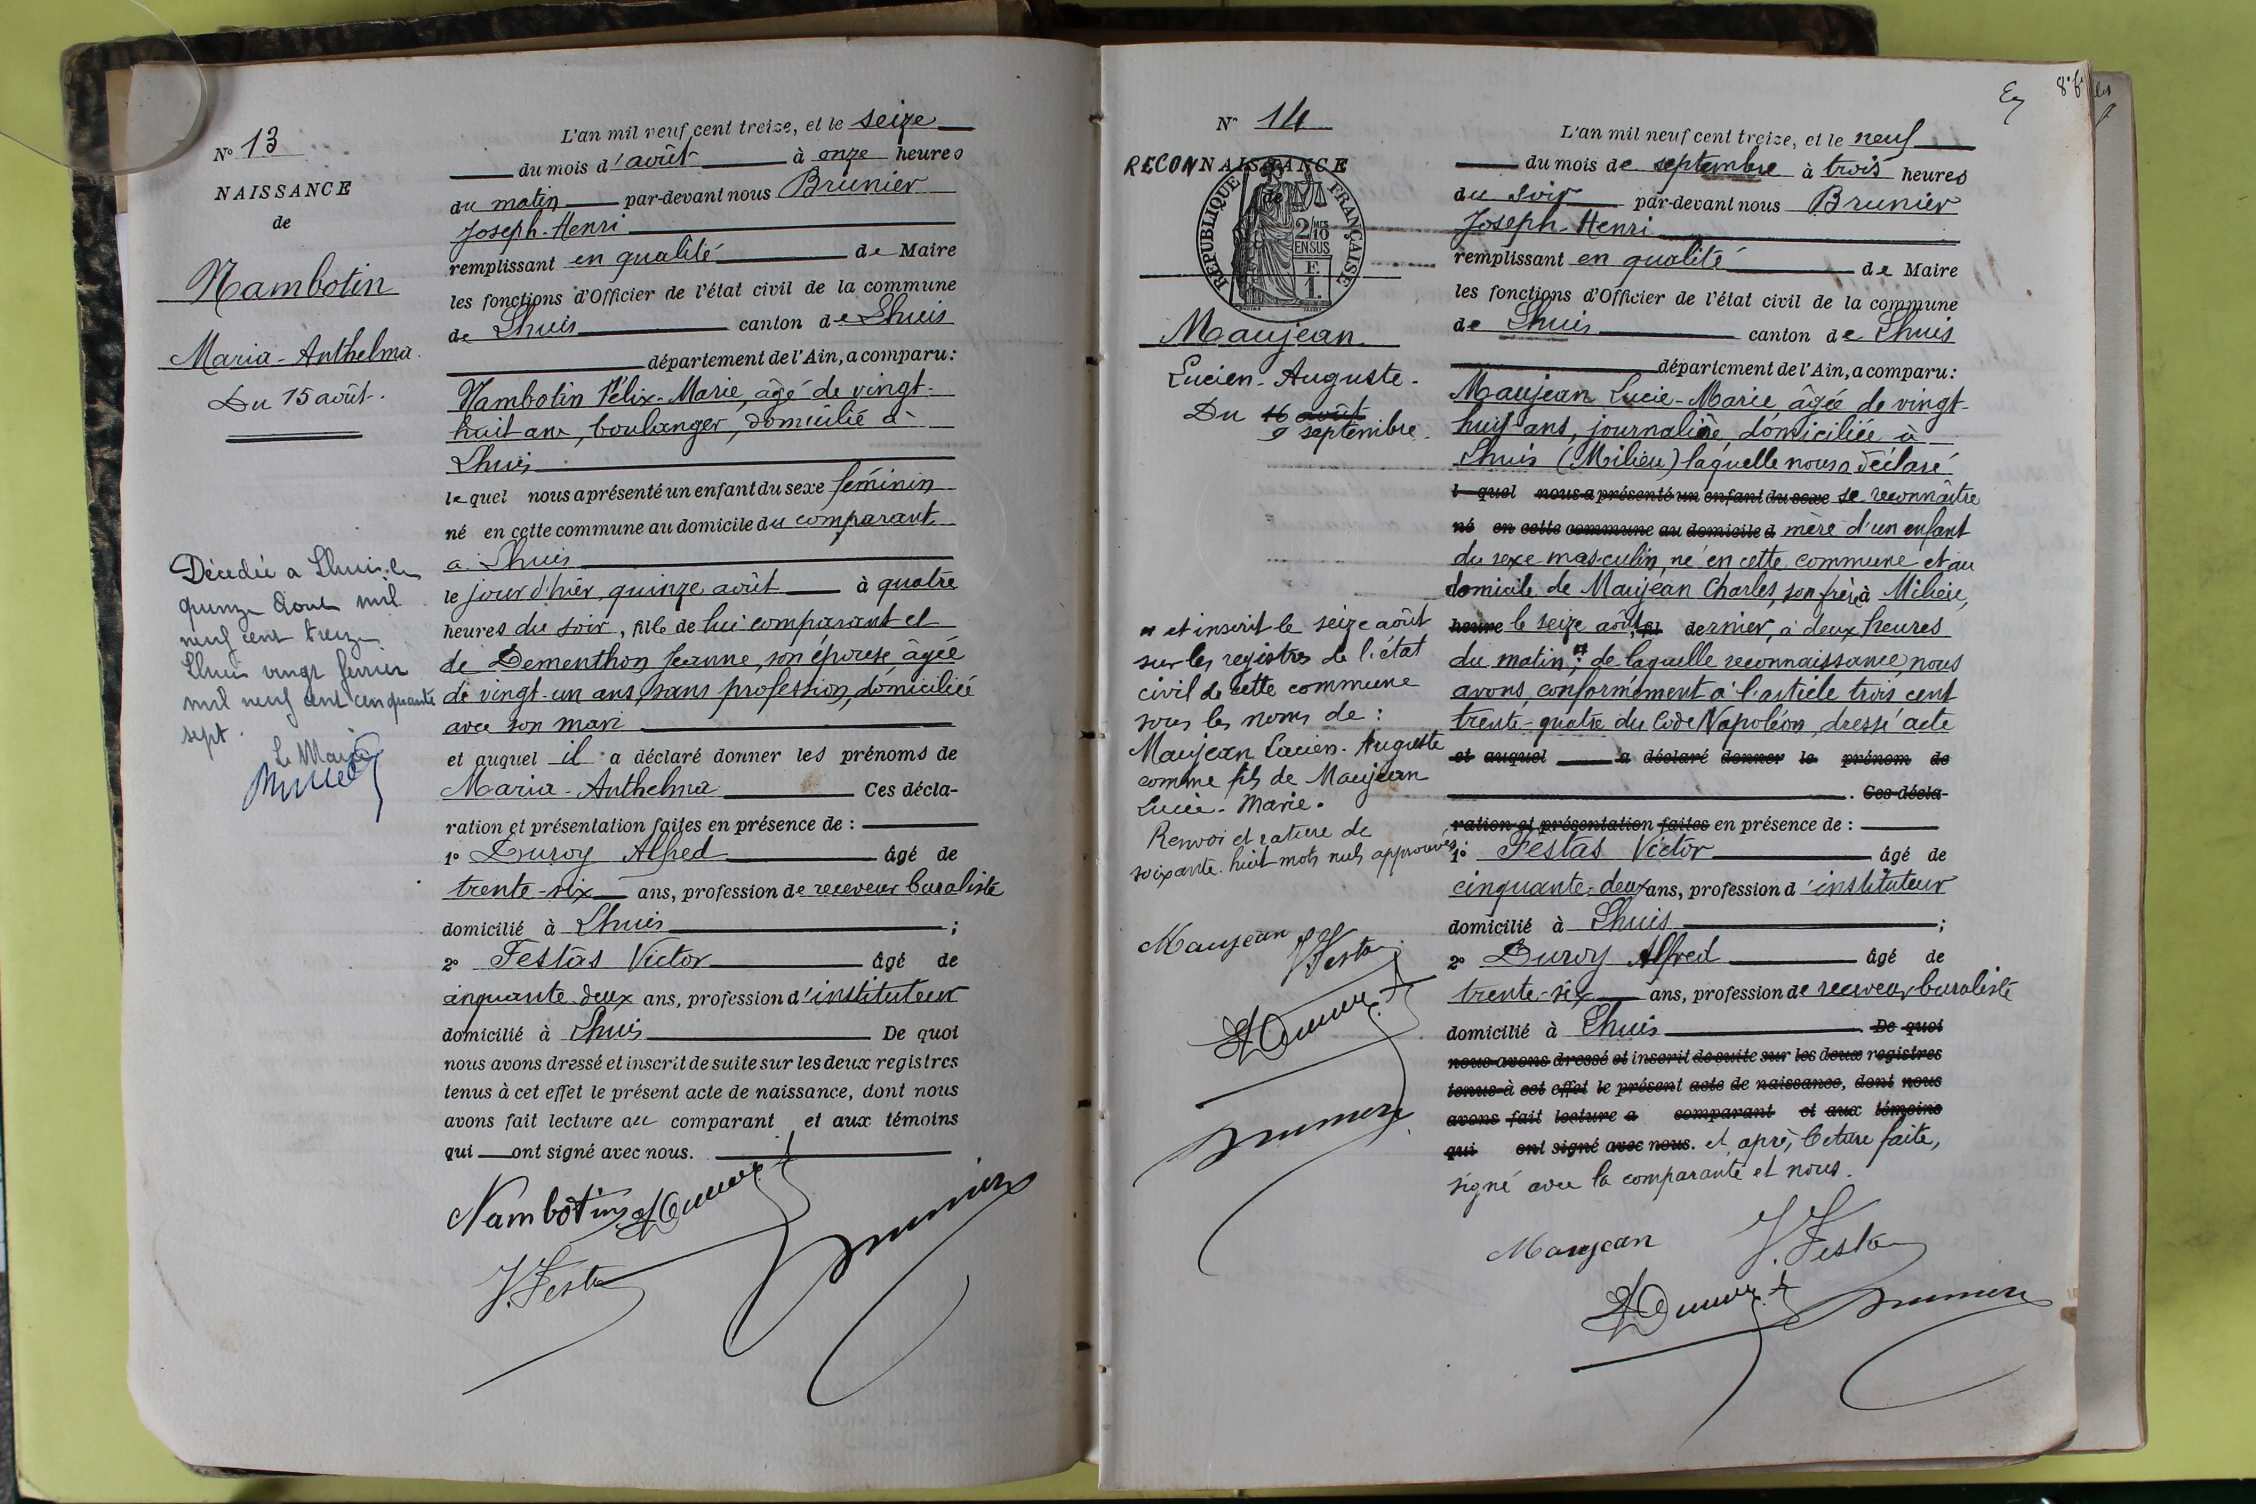 N° 13
NAISSANCE
de
Nambotin
Maria-Anthelma.
Du 15 août.
Décédée a Lhuis le
quinze Aout mil
neuf cent treize
Lhuis vingt fevrier
mil neuf cent cinquante
sept.
Le Maire
L'an mil neuf cent treize, et le seize
du mois d'août à onze heures
du matin par-devant nous Brunier
Joseph-Henri
remplissant en qualité de Maire
les fonctions d'Officier de l'état civil de la commune
de Lhuis canton de Lhuis
département de l'Ain, a comparu:
Nambotin Félix-Marie, âgé de vingt-
huit ans, boulanger, domicilié à
Lhuis
lequel nous a présenté un enfant du sexe féminin
né en cette commune au domicile du comparant
à Lhuis
le jour d'hier, quinze août à quatre
heures du soir, fille de lui comparant et
de Dementhon Jeanne, son épouse, âgée
de vingt-un ans, sans profession, domiciliée
avec son mari
et auquel il a déclaré donner les prénoms de
Maria-Anthelma Ces décla-
ration et présentation faites en présence de :
1° Duroy Alfred âgé de
trente-six ans, profession de receveur buraliste
domicilié à Lhuis ;
2° Festas Victor âgé de
cinquante-deux ans, profession d'instituteur
domicilié à Lhuis De quoi
nous avons dressé et inscrit de suite sur les deux registres
tenus à cet effet le présent acte de naissance, dont nous
avons fait lecture au comparant et aux témoins
qui ont signé avec nous.
Nambotin
V. Festas
Brunier
N° 14
RECONNAISSANCE
de
RÉPUBLIQUE FRANÇAISE
2/10 MES
EN SUS
F.
1.
Maujean
Lucien-Auguste.
Du 16 août
9 septembre.
et inscrit le seize août
sur les registres de l'état
civil de cette commune
sous les noms de :
Maujean Lucien-Auguste
comme fils de Maujean
Lucie-Marie.
Renvoi et rature de
soixante-huit mots nuls approuvés
Maujean V. Festas
Brunier
L'an mil neuf cent treize, et le neuf
du mois de septembre à trois heures
du soir par-devant nous Brunier
Joseph-Henri
remplissant en qualité de Maire
les fonctions d'Officier de l'état civil de la commune
de Lhuis canton de Lhuis
département de l'Ain, a comparu:
Maujean Lucie-Marie âgée de vingt-
huit ans, journalière, domiciliée à
Lhuis (Milieu) laquelle nous a déclaré
l quel nous a présenté un enfant du sexe se reconnaître
né en cette commune au domicile d mère d'un enfant
du sexe masculin, né en cette commune et au
domicile de Maujean Charles, son frère à Milieu,
heure le seize août dernier, à deux heures
du matin; de laquelle reconnaissance, nous
avons, conformément à l'article trois cent
trente-quatre du Code Napoléon, dressé acte
et auquel a déclaré donner le prénom de
. Ces décla-
ration et présentation faites en présence de :
1° Festas Victor âgé de
cinquante-deux ans, profession d'instituteur
domicilié à Lhuis ;
2° Duroy Alfred âgé de
trente-six ans, profession de receveur buraliste
domicilié à Lhuis . De quoi
nous avons dressé et inscrit de suite sur les deux registres
tenus à cet effet le présent acte de naissance, dont nous
avons fait lecture a comparant et aux témoins
qui ont signé avec nous. et, après lecture faite,
signé avec la comparante et nous.
Maujean V. Festas
Brunier